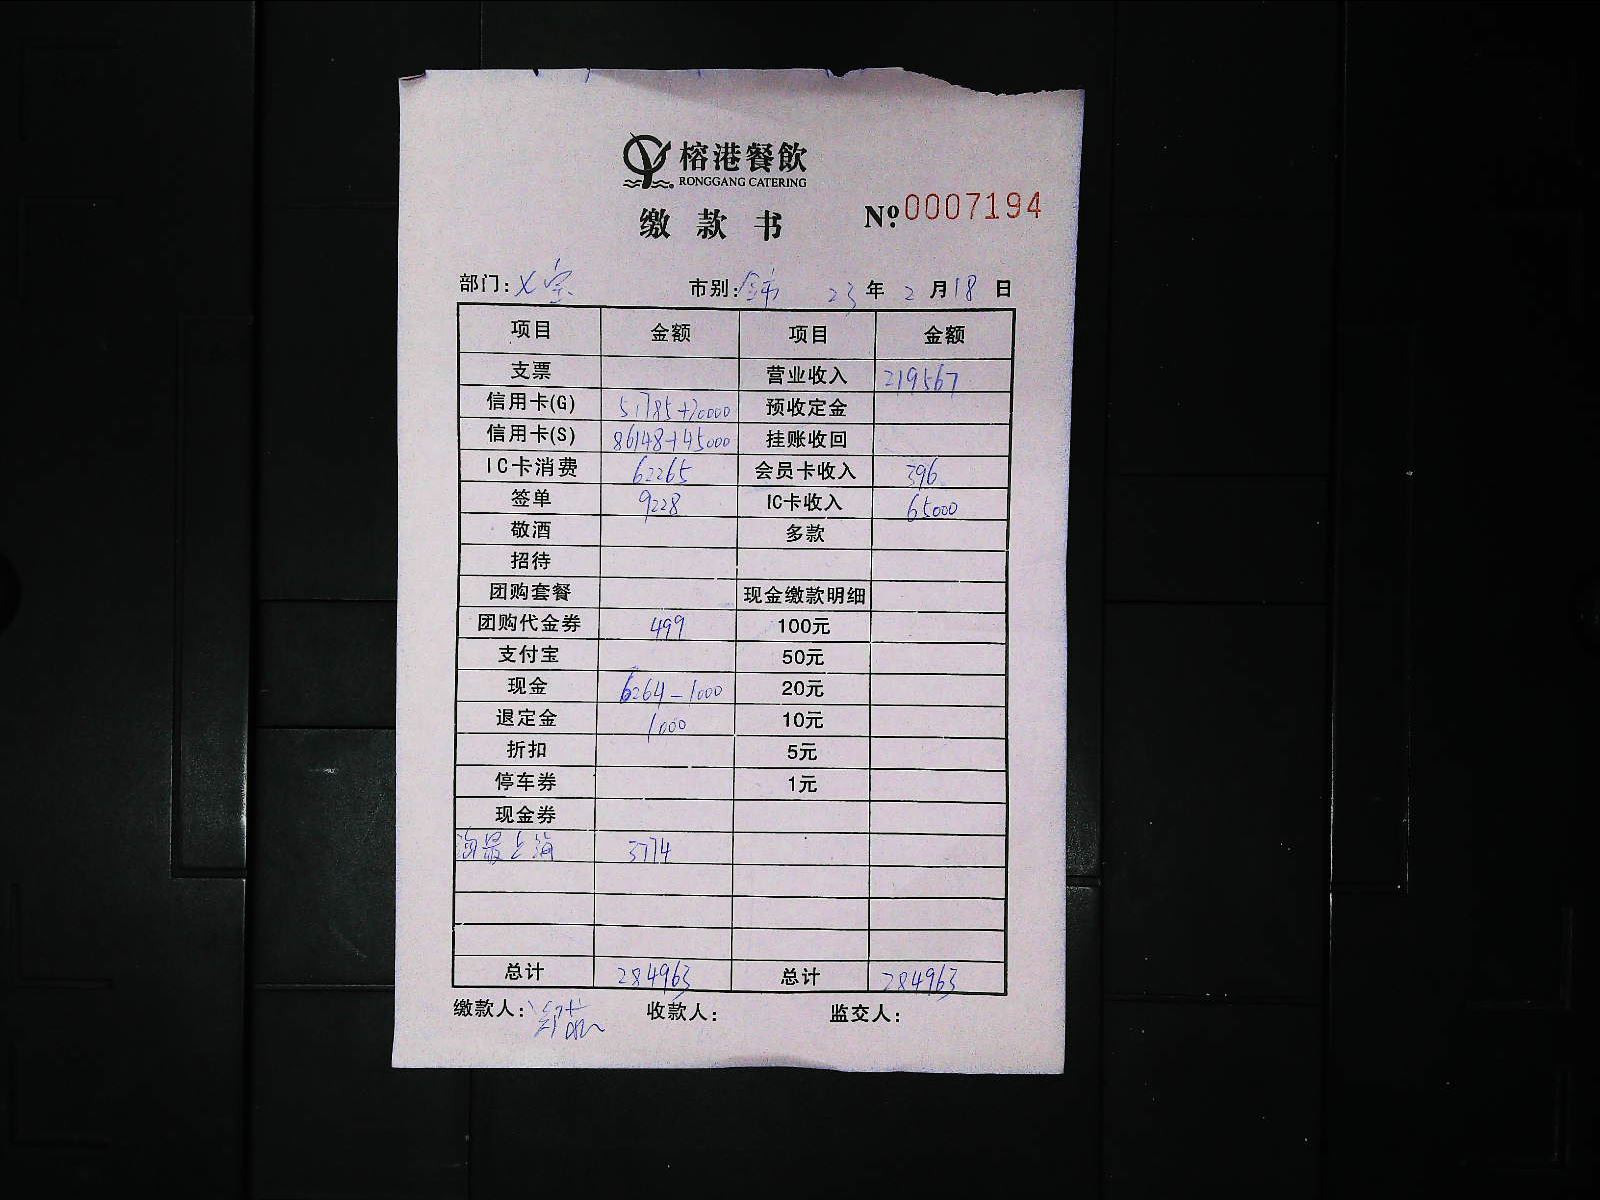 榕港餐飲
RONGGANG CATERING
缴款书 №:0007194
部门: 市别:全市 23年2月18日
项目 金额 项目 金额
支票 营业收入 219567
信用卡(G) 51785+20000 预收定金
信用卡(S) 86148+45000 挂账收回
IC卡消费 62265 会员卡收入 396
签单 9228 IC卡收入 65000
敬酒 多款
招待
团购套餐 现金缴款明细
团购代金券 499 100元
支付宝 50元
现金 6264-1000 20元
退定金 1000 10元
折扣 5元
停车券 1元
现金券
上海 3774
总计 284963 总计 284963
缴款人: 收款人: 监交人: